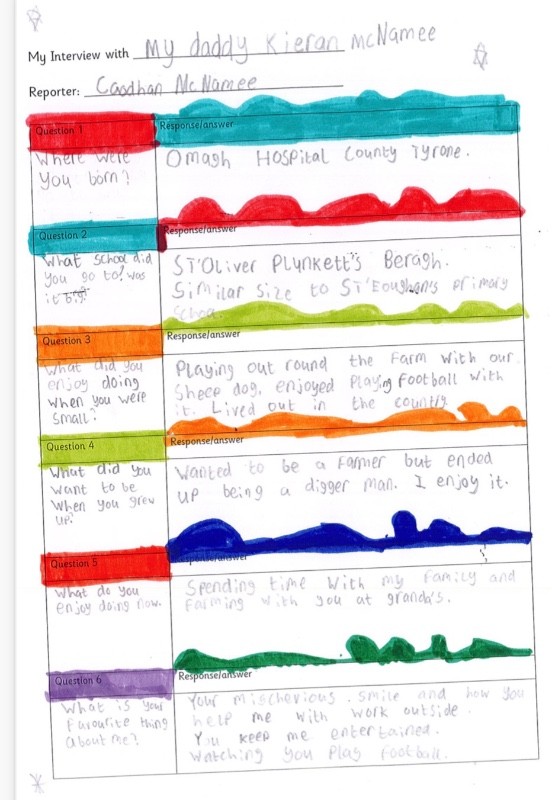 My Interview with My daddy Kieran McNamee
Reporter: Caodhan McNamee
Question 1
Response/answer
Where were
you born?
Omagh Hospital County Tyrone.
Question 2
Response/answer
What school did
you go to? was
it big?
ST'Oliver Plynkett's Beragh.
Similar size to ST'Eoughan's primary
school.
Question 3
Response/answer
What did you
enjoy doing
when you were
small?
Playing out round the Farm with our
Sheep dog. enjoyed Playing Football with
it. Lived out in the country
Question 4
Response/answer
What did you
want to be
when you grew
up?
Wanted to be a Famer but ended
up being a digger man. I enjoy it.
Question 5
Response/answer
What do you
enjoy doing now.
Spending time with my Family and
Farming with you at granda's.
Question 6
Response/answer
What is your
Favourite thing
about me?
Your mischevious smile and how you
help me with work outside.
You keep me entertained.
Watching you Play Football.